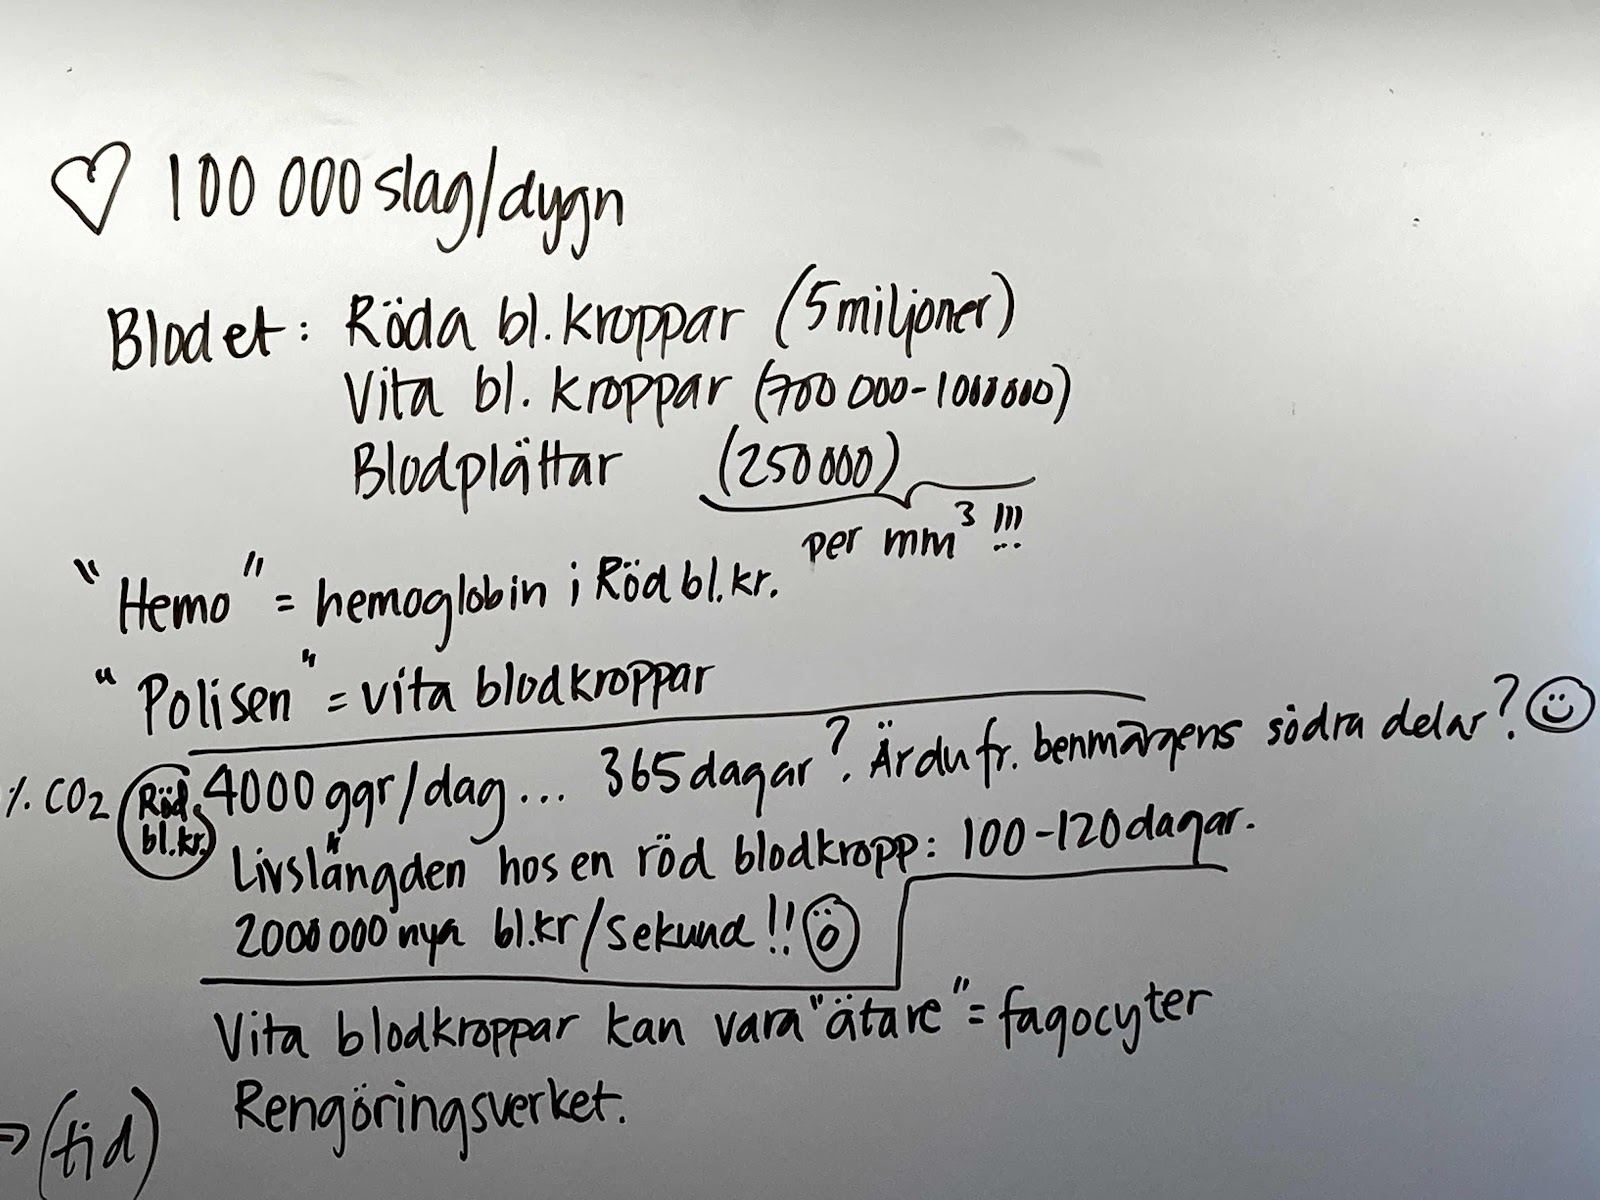 ♡ 100 000 slag/dygn
Blodet: Röda bl. kroppar (5 miljoner)
Vita bl. kroppar (700 000-1000000)
Blodplättar (250000)
per mm³ !!!
"Hemo" = hemoglobin i Röd bl.kr.
"Polisen" = vita blodkroppar
% CO2 Röd. bl.kr. 4000 ggr/dag... 365 dagar? Är du fr. benmärgens södra delar?
Livslängden hos en röd blodkropp: 100-120 dagar.
2000000 nya bl.kr/sekund!!
Vita blodkroppar kan vara "ätare" = fagocyter
Rengöringsverket.
→ (tid)